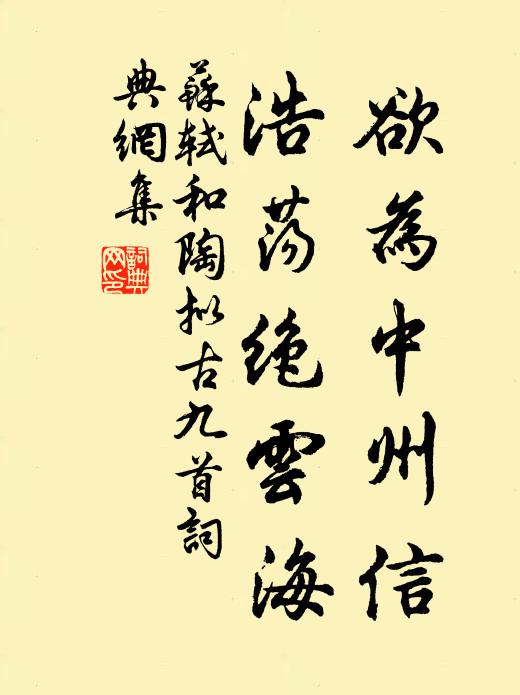 欲為中州信
浩蕩絕雲海
蘇軾和陶擬古九首詞
典網集
詞典
网印